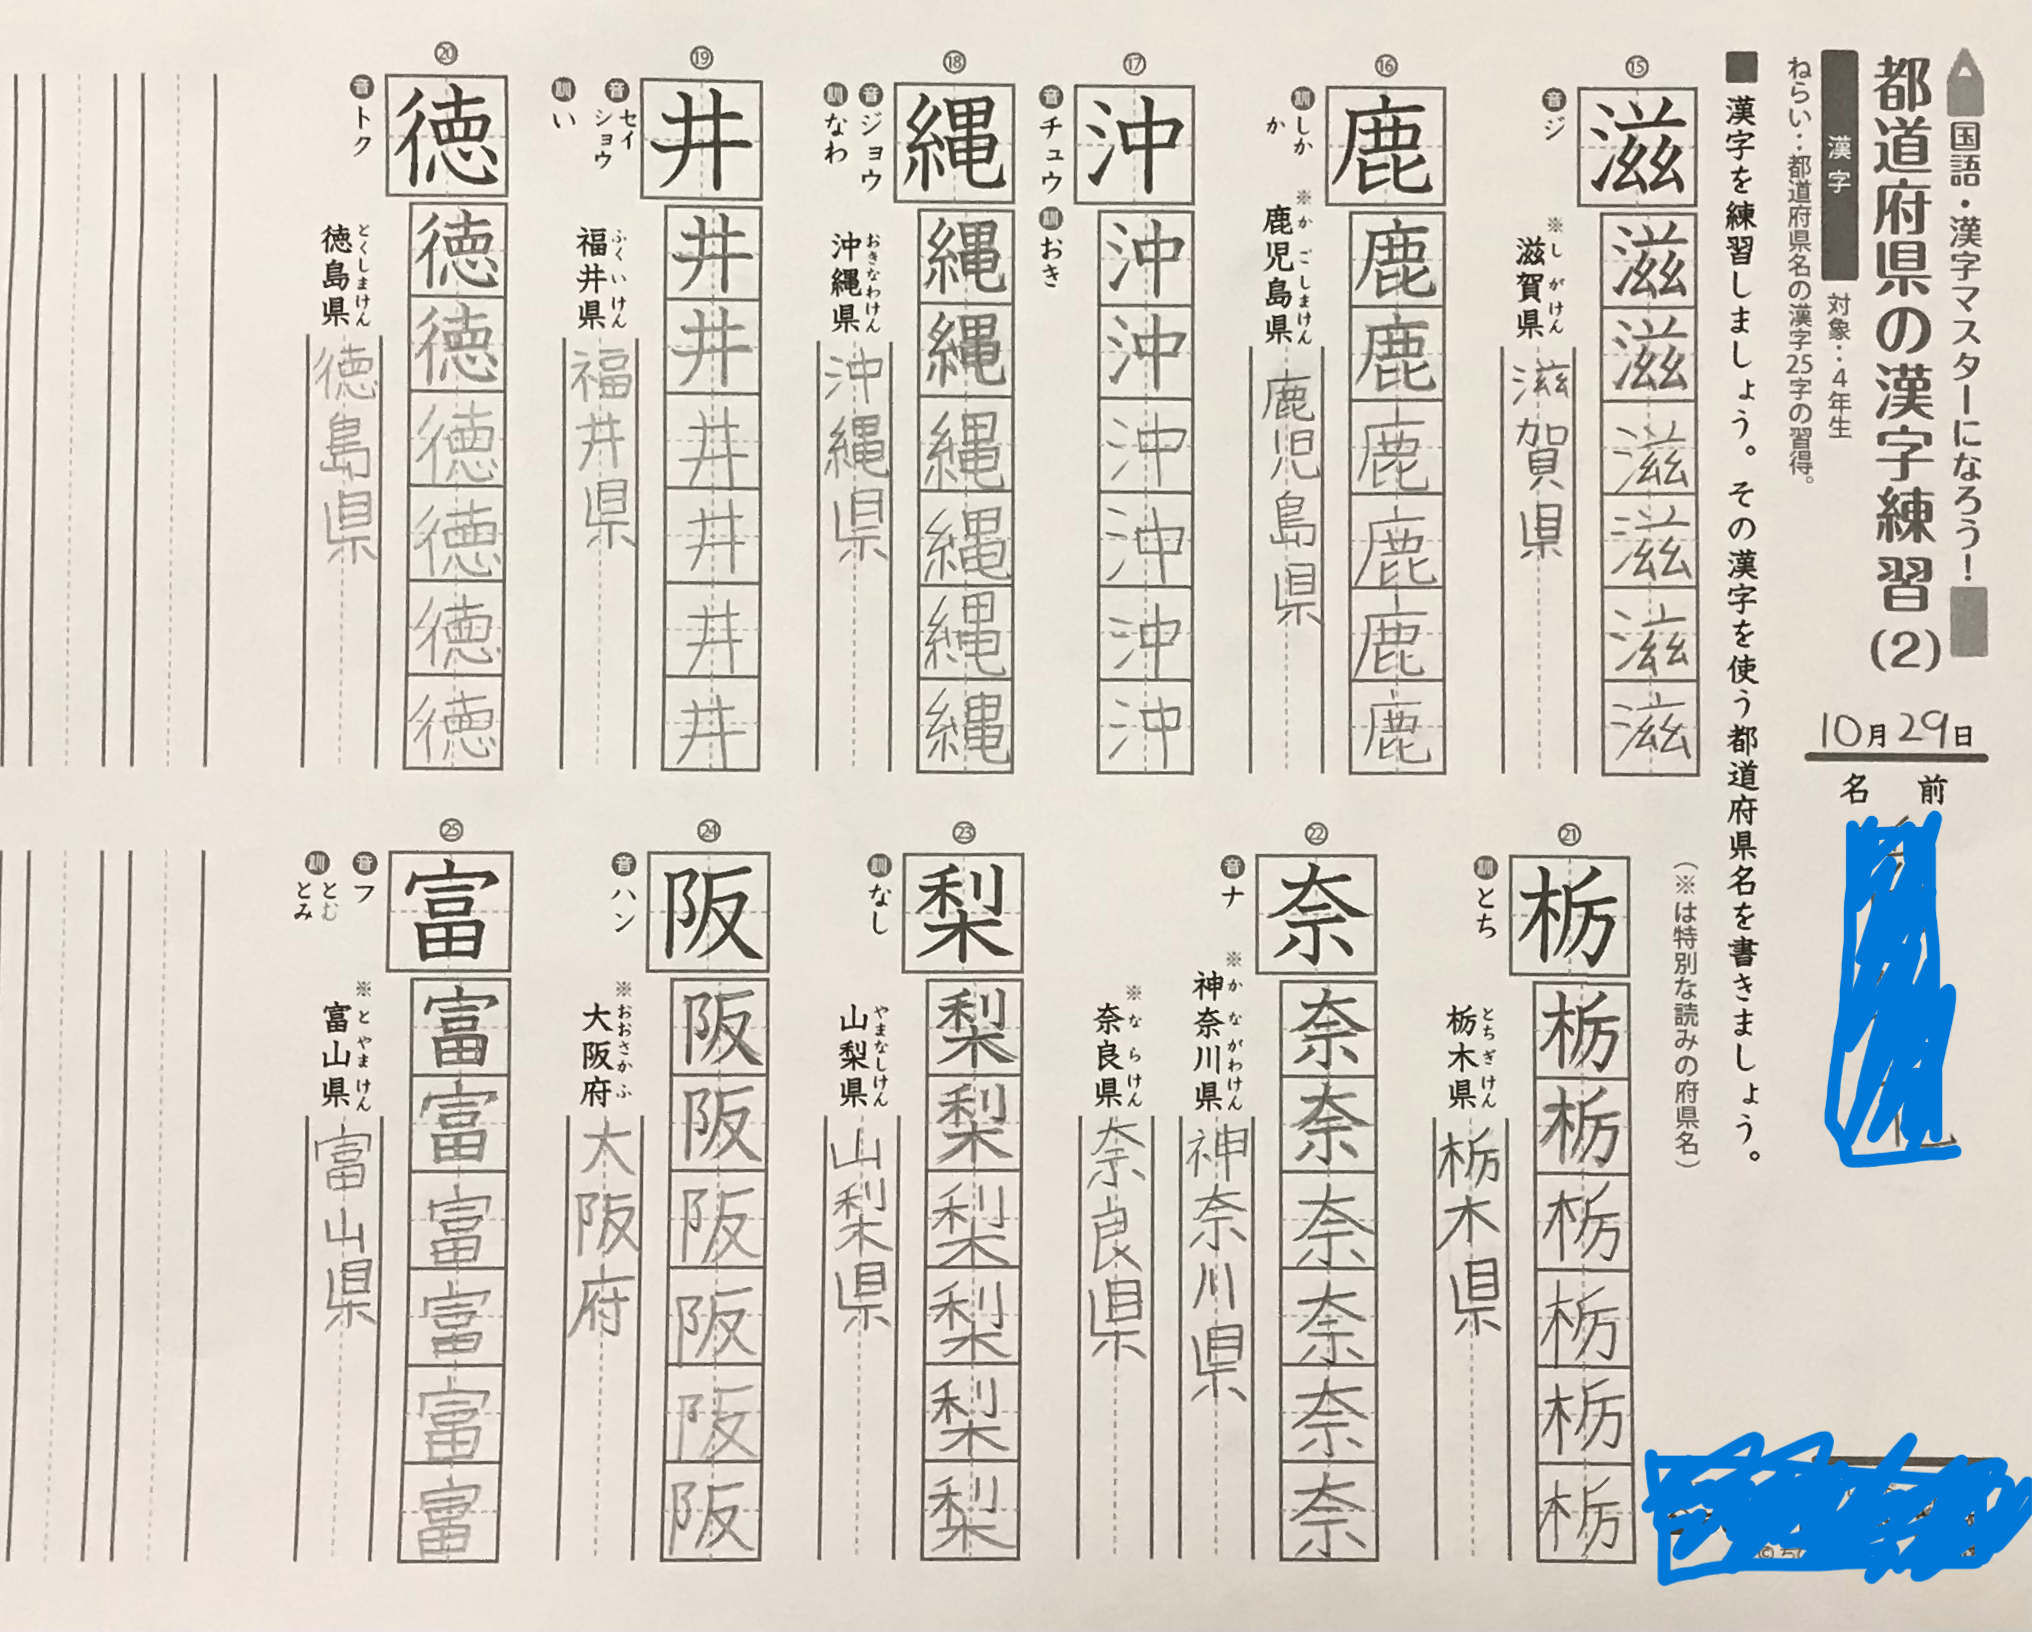 国語・漢字マスターになろう！
都道府県の漢字練習(2)
漢字 対象：4年生
ねらい：都道府県名の漢字25字の習得。
10月29日
名前
■漢字を練習しましょう。その漢字を使う都道府県名を書きましょう。
（※は特別な読みの府県名）
⑮
滋滋滋滋滋滋滋
音ジ
※しがけん
滋賀県 滋賀県
⑯
鹿鹿鹿鹿鹿鹿鹿
訓しか
か
※かごしまけん
鹿児島県 鹿児島県
⑰
沖沖沖沖沖沖沖
音チュウ 訓おき
⑱
縄縄縄縄縄縄縄
音ジョウ
訓なわ
おきなわけん
沖縄県 沖縄県
⑲
井井井井井井井
音セイ
ショウ
訓い
ふくいけん
福井県 福井県
⑳
徳徳徳徳徳徳徳
音トク
とくしまけん
徳島県 徳島県
㉑
栃栃栃栃栃栃栃
訓とち
とちぎけん
栃木県 栃木県
㉒
奈奈奈奈奈奈奈
音ナ
※かながわけん
神奈川県 神奈川県
※ならけん
奈良県 奈良県
㉓
梨梨梨梨梨梨梨
訓なし
やまなしけん
山梨県 山梨県
㉔
阪阪阪阪阪阪阪
音ハン
※おおさかふ
大阪府 大阪府
㉕
富富富富富富富
音フ
訓とむ
とみ
※とやまけん
富山県 富山県